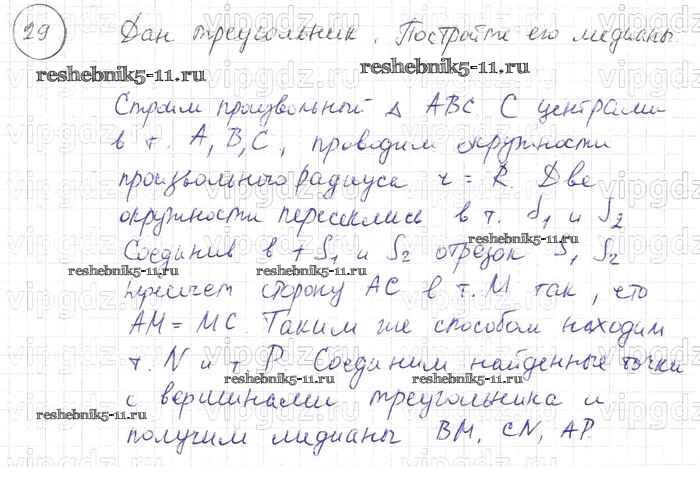 29 Дан треугольник. Постройте его медианы
reshebnik5-11.ru reshebnik5-11.ru
Строим произвольный Δ ABC С центрами
в т. A, B, C, проводим окружности
произвольного радиуса r = R. Две
окружности пересеклись в т. S₁ и S₂
reshebnik5-11.ru
Соединив в т S₁ и S₂ отрезок S₁ S₂
reshebnik5-11.ru reshebnik5-11.ru
сторону AC в т. M так, что
AM = MC. Таким же способом находим
т. N и т P. Соединим найденные точки
reshebnik5-11.ru reshebnik5-11.ru
с вершинами треугольника и
reshebnik5-11.ru
получим медианы BM, CN, AP.
vipgdz.ru